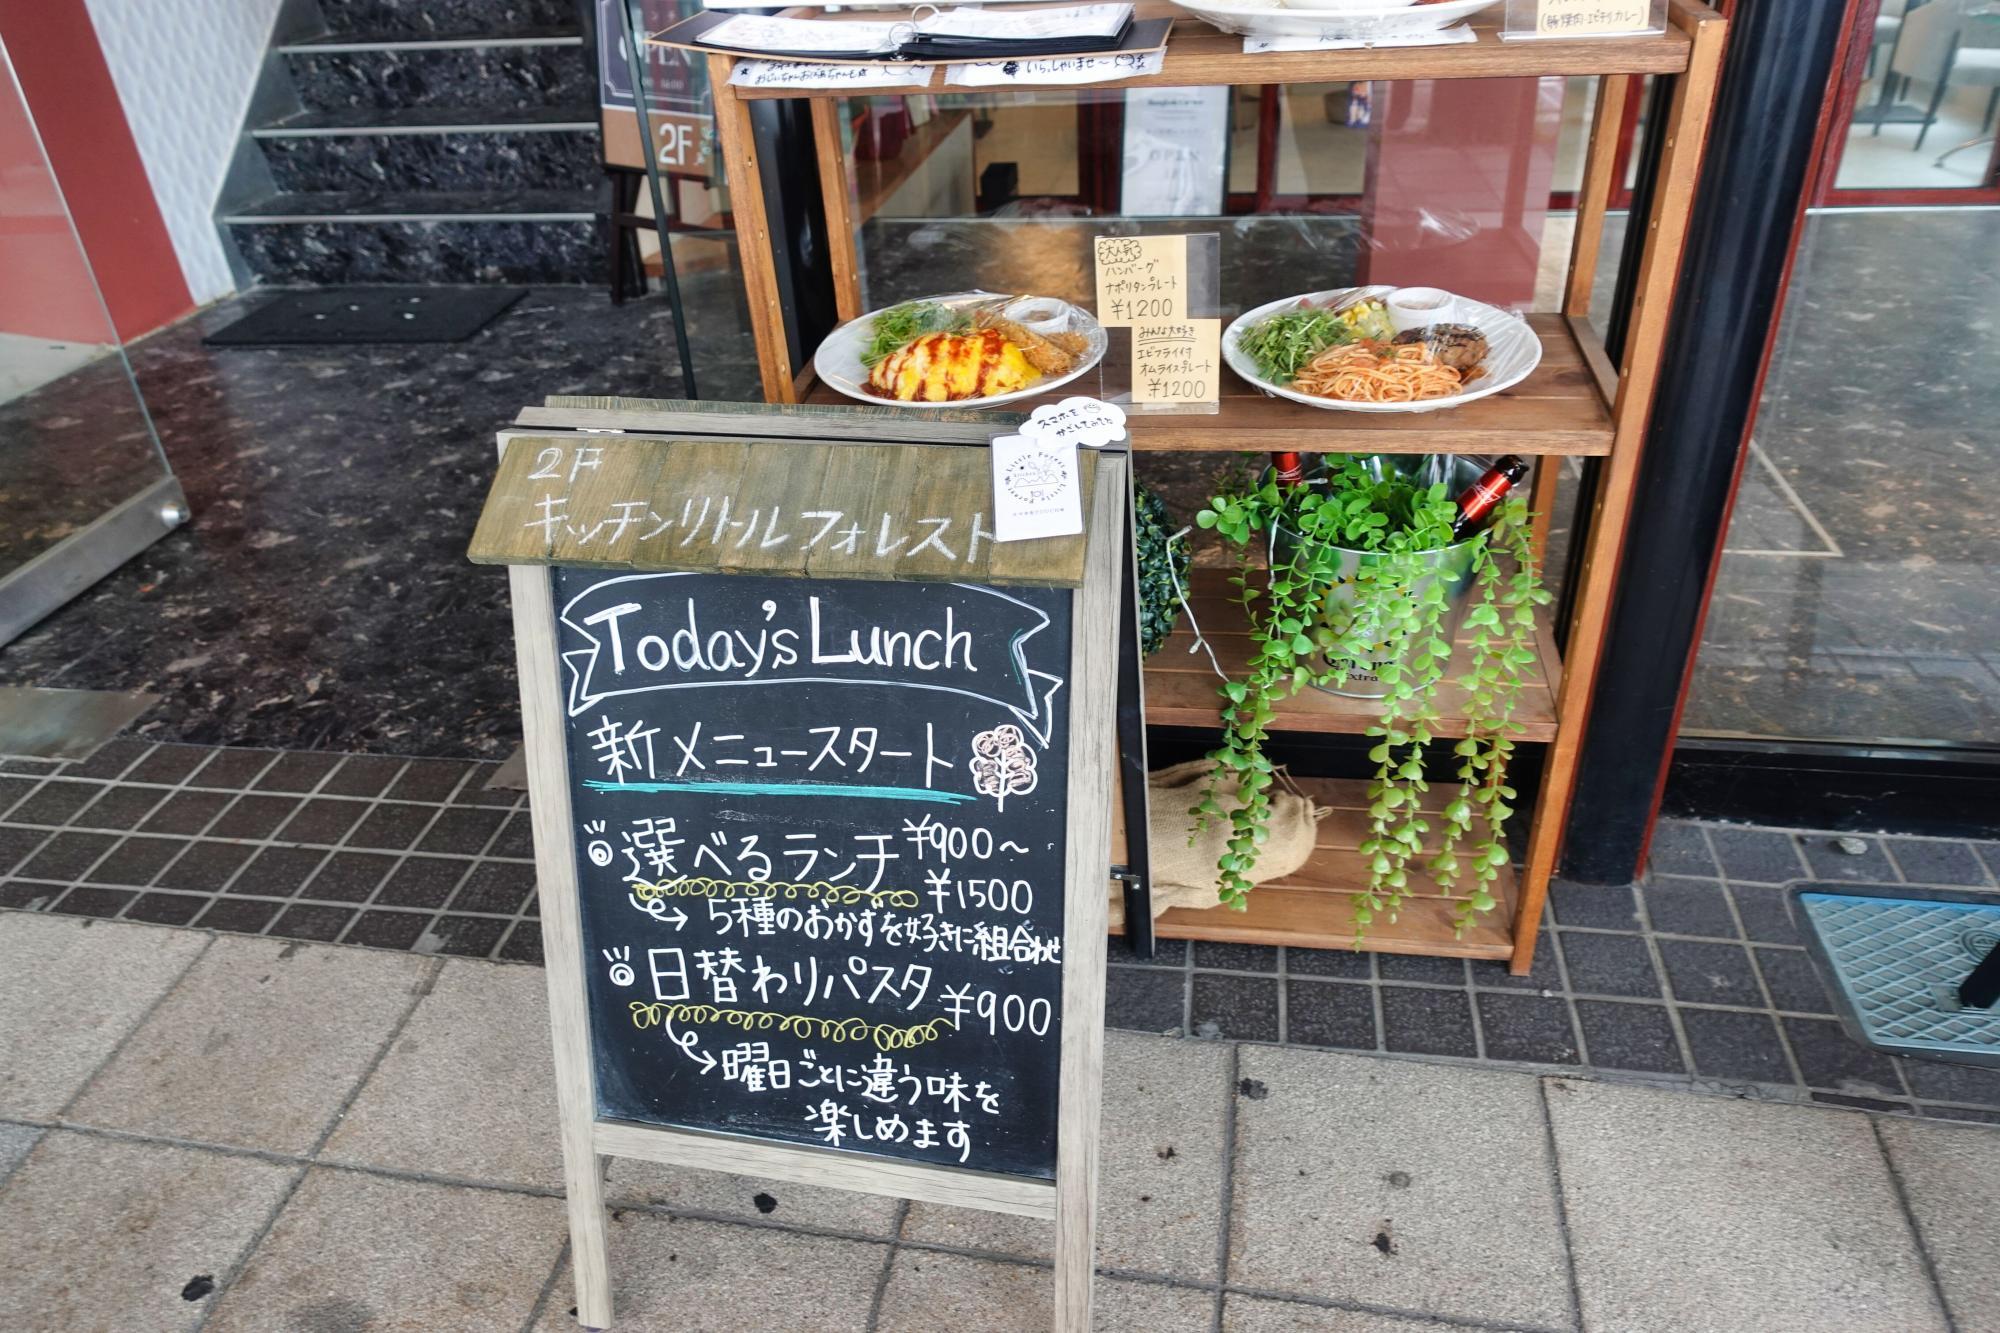 (豚焼肉・エビチリカレー)
おじいちゃんおばあちゃんも
いらっしゃいませ～
2F
OPEN
大人気
ハンバーグ
ナポリタンプレート
¥1200
みんな大好き
エビフライ付
オムライスプレート
¥1200
スマホを
かざしてみてね
Little Forest
Little Forest
2F
キッチンリトルフォレスト
Today's Lunch
新メニュースタート
選べるランチ ¥900～
¥1500
5種のおかずを好きに組合わせ
日替わりパスタ ¥900
曜日ごとに違う味を
楽しめます
Extra